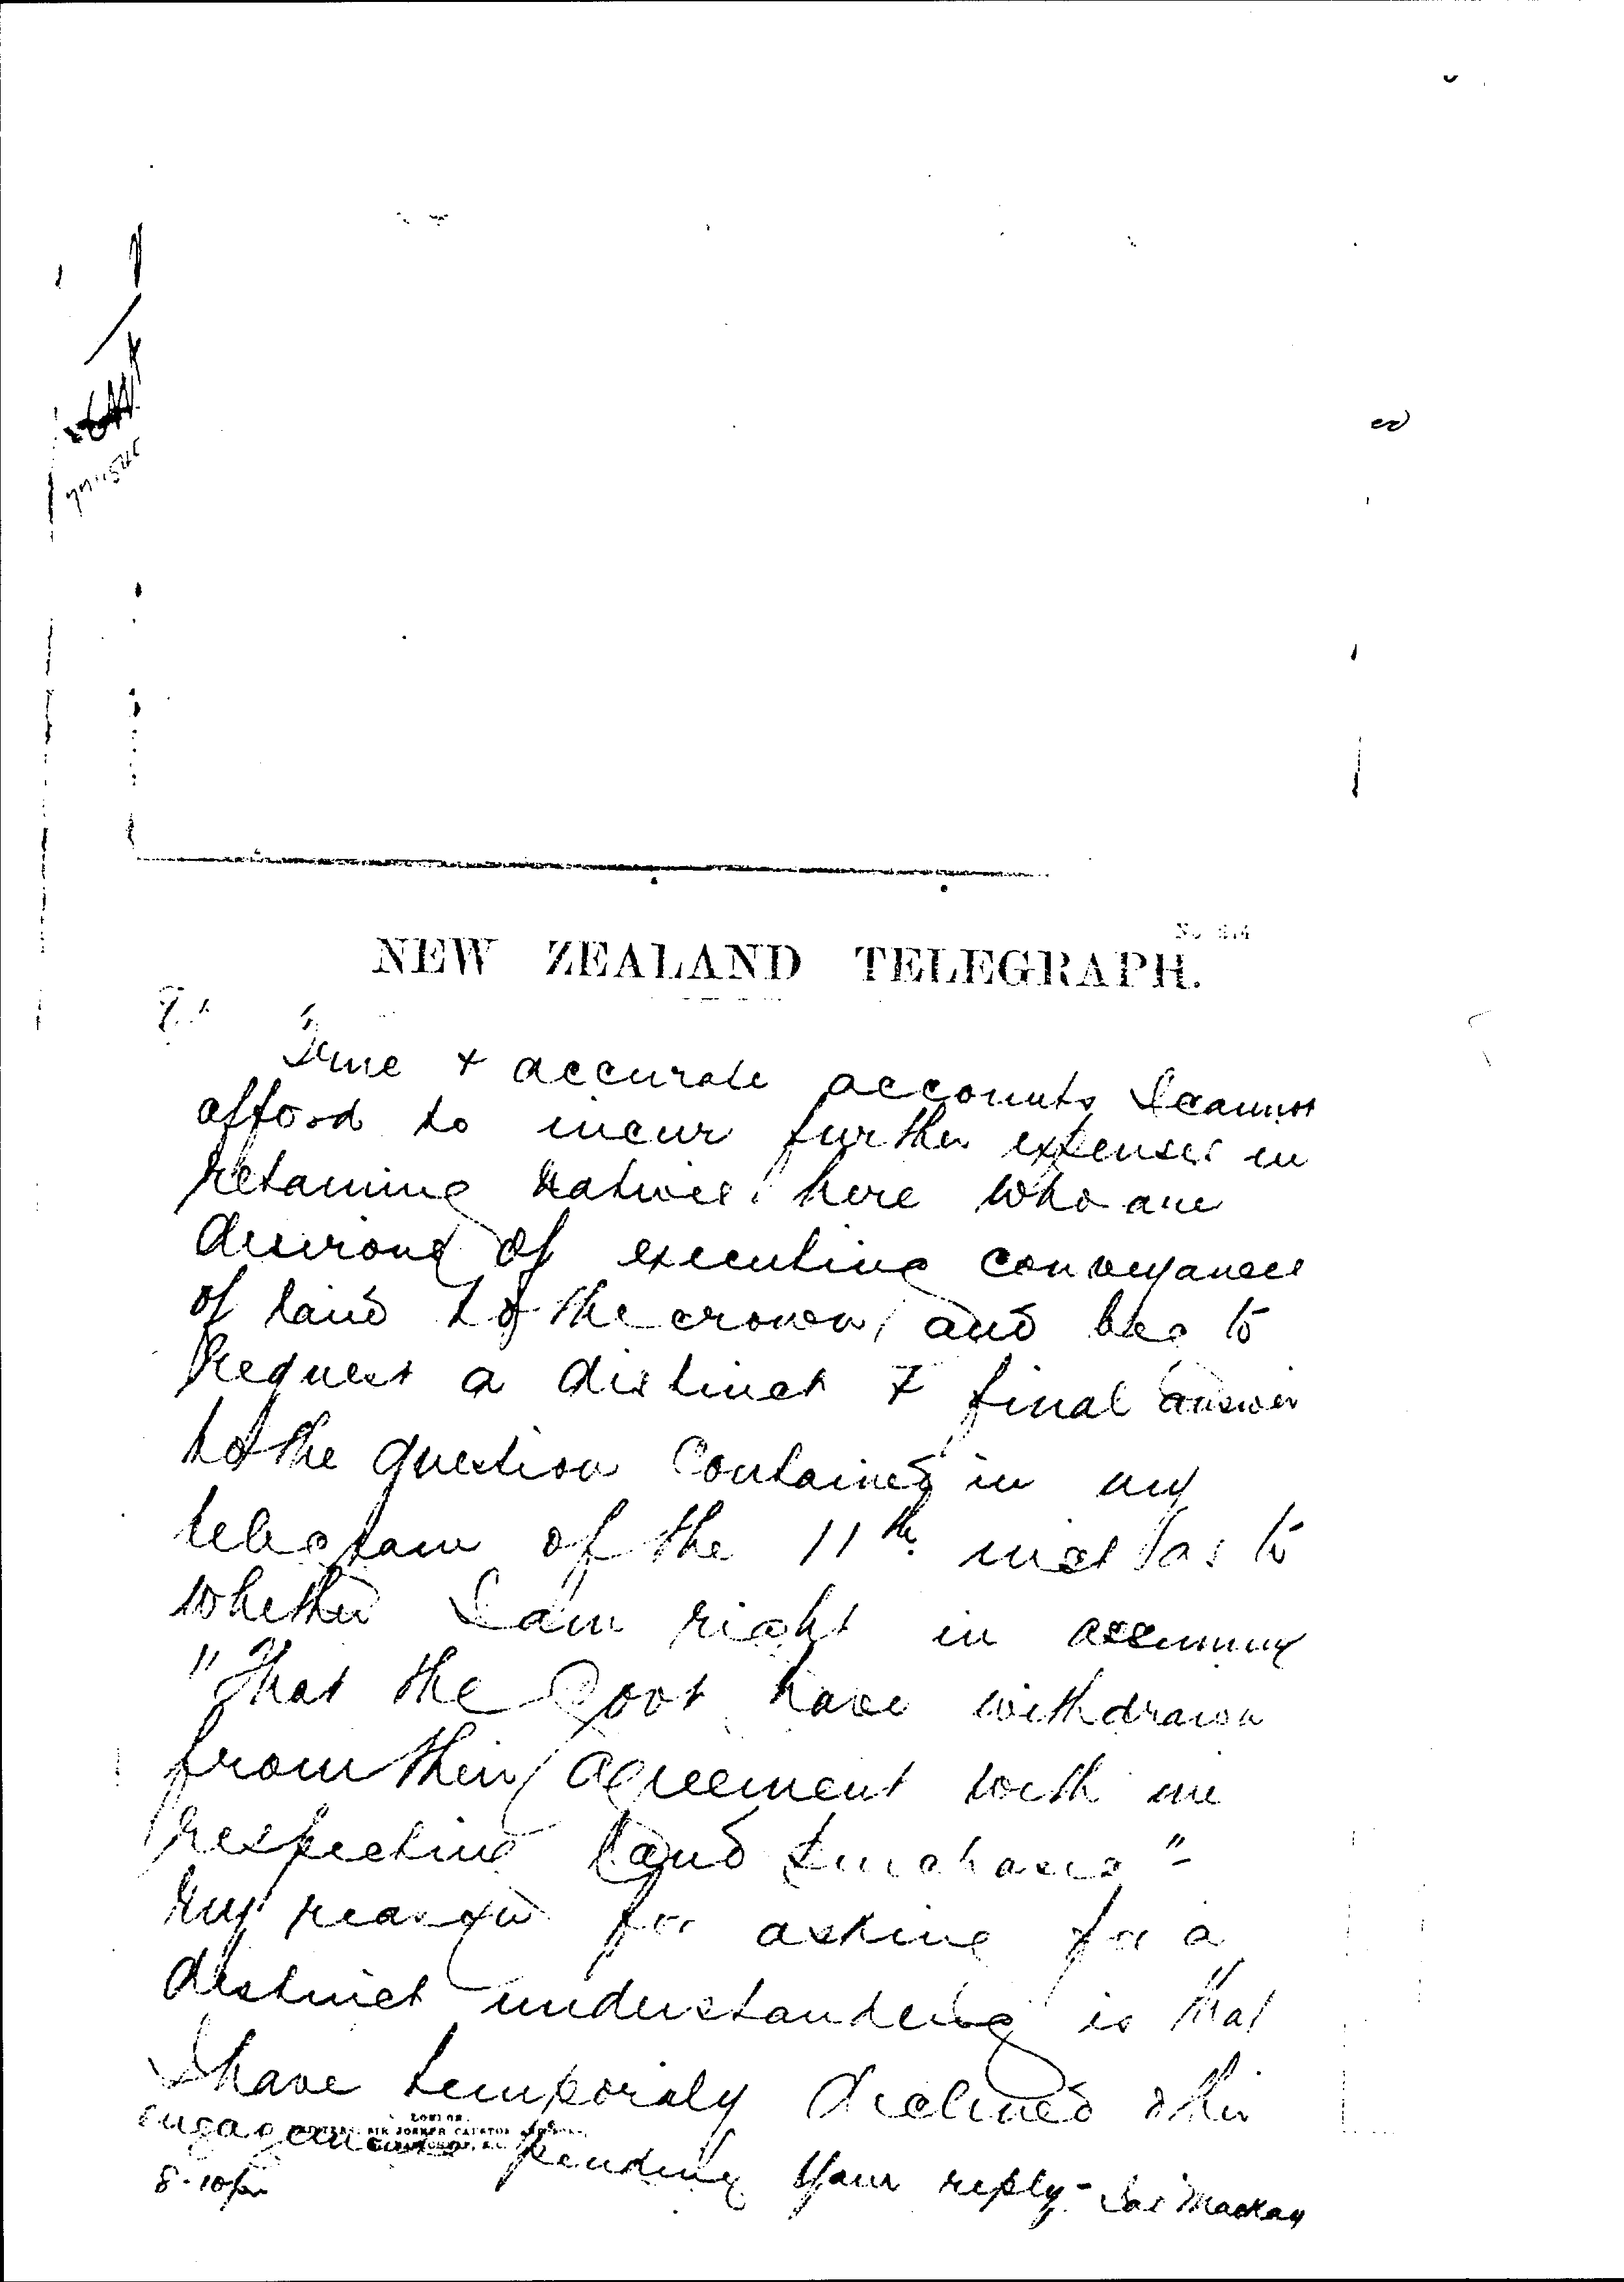 NEW ZEALAND TELEGRAPH.
True & accurate accounts I cannot
afford to incur further expenses in
retaining natives here who are
desirous of executing conveyances
of land to the crown, and beg to
request a distinct & final answer
to the question contained in my
telegram of the 11th inst as to
whether I am right in assuming
"That the Govt have withdrawn
from their agreement with me
respecting land purchases" -
my reason for asking for a
distinct understanding is that
I have temporaly declined other
engagements pending your reply - Jas Mackay
8-10 pm